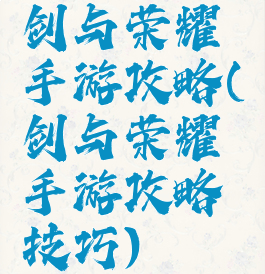 剑与荣耀
手游攻略(
剑与荣耀
手游攻略
技巧)